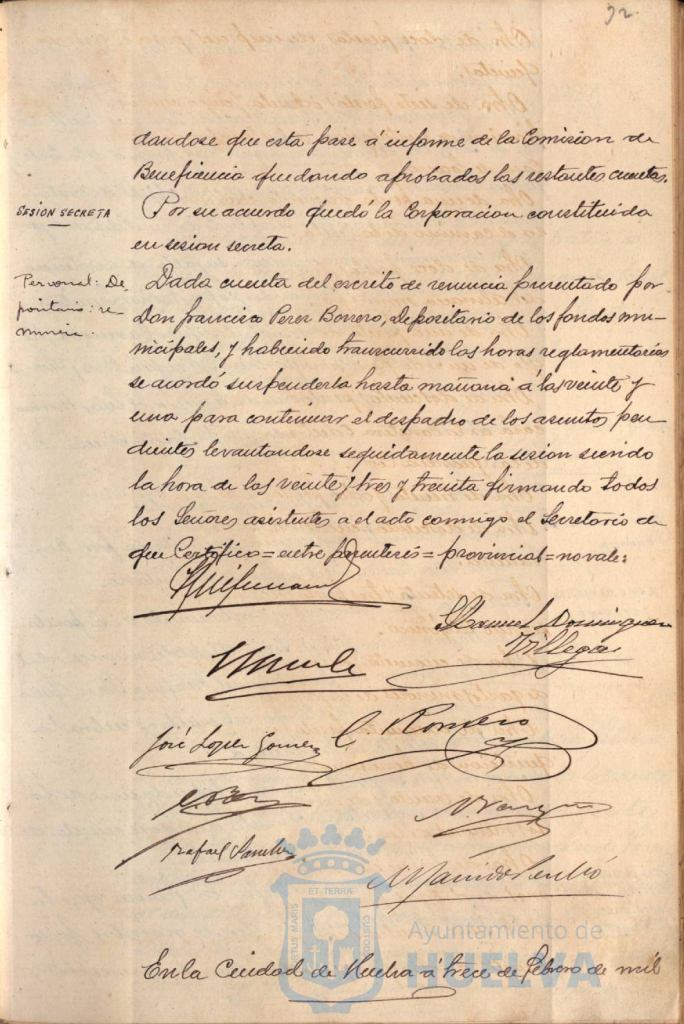 92.
dandose que esta pase á informe de la Comision de
Beneficencia quedando aprobadas las restantes cuentas.
SESIÓN SECRETA
Por su acuerdo quedó la Corporacion constituida
en sesion secreta.
Personal: De-
positario: re-
nuncia.
Dada cuenta del escrito de renuncia presentado por
Don Francisco Perez Borrero, Depositario de los fondos mu-
nicipales, y habiendo transcurrido las horas reglamentarias
se acordó suspenderla hasta mañana á las veinte y
una para continuar el despacho de los asuntos pen-
dientes levantandose seguidamente la sesion siendo
la hora de las veinte y tres y treinta firmando todos
los Señores asistentes a el acto conmigo el Secretario de
que Certifico = entre parentesis = provincial = no vale:
Manuel Dominguez
Villegas
José Lopez Gomez
C. Romero
Rafael Sanchez
ET TERRÆ
PORTUS MARIS
CUSTODIA
Ayuntamiento de
HUELVA
En la Ciudad de Huelva á trece de Febrero de mil